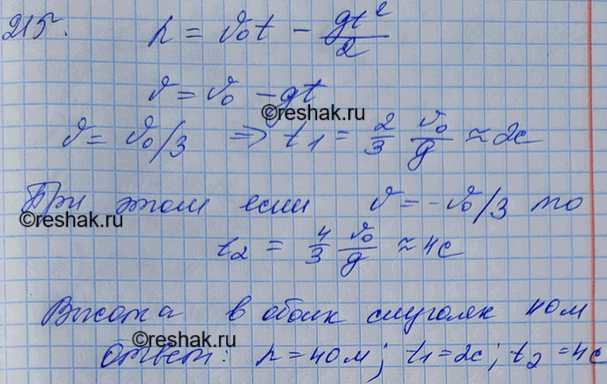 215. h = v₀t − gt²/2
v = v₀ − gt
©reshak.ru
v = v₀/3 ⇒ t₁ = 2/3 v₀/g ≈ 2с
При этом если v = −v₀/3 то
©reshak.ru
t₂ = 4/3 v₀/g ≈ 4с
©reshak.ru
Высота в обоих случаях 40м
©reshak.ru
Ответ: h = 40м; t₁ = 2с; t₂ = 4с